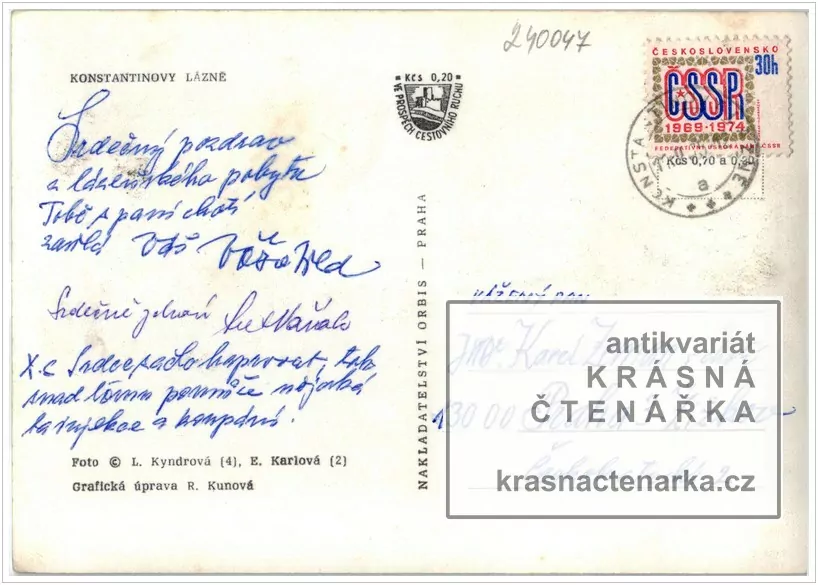 240047
KONSTANTINOVY LÁZNĚ
Kčs 0,20
VE PROSPĚCH CESTOVNÍHO RUCHU
ČESKOSLOVENSKO
30h
ČSSR
1969-1974
FEDERATIVNÍ USPOŘÁDÁNÍ ČSSR
Kčs 0,70 a 0,30
a
Srdečný pozdrav
z lázeňského pobytu
Tobě s paní chotí
zasílá Váš
Srdečně zdraví
X.C Srdce začlo haprovat, tak
snad tomu pomůže nějaká
ta injekce a koupání.
Foto © L. Kyndrová (4), E. Karlová (2)
Grafická úprava R. Kunová
NAKLADATELSTVÍ ORBIS — PRAHA
VÁŽENÝ PAN
Karel
130 00 Praha
antikvariát
KRÁSNÁ
ČTENÁŘKA
krasnactenarka.cz